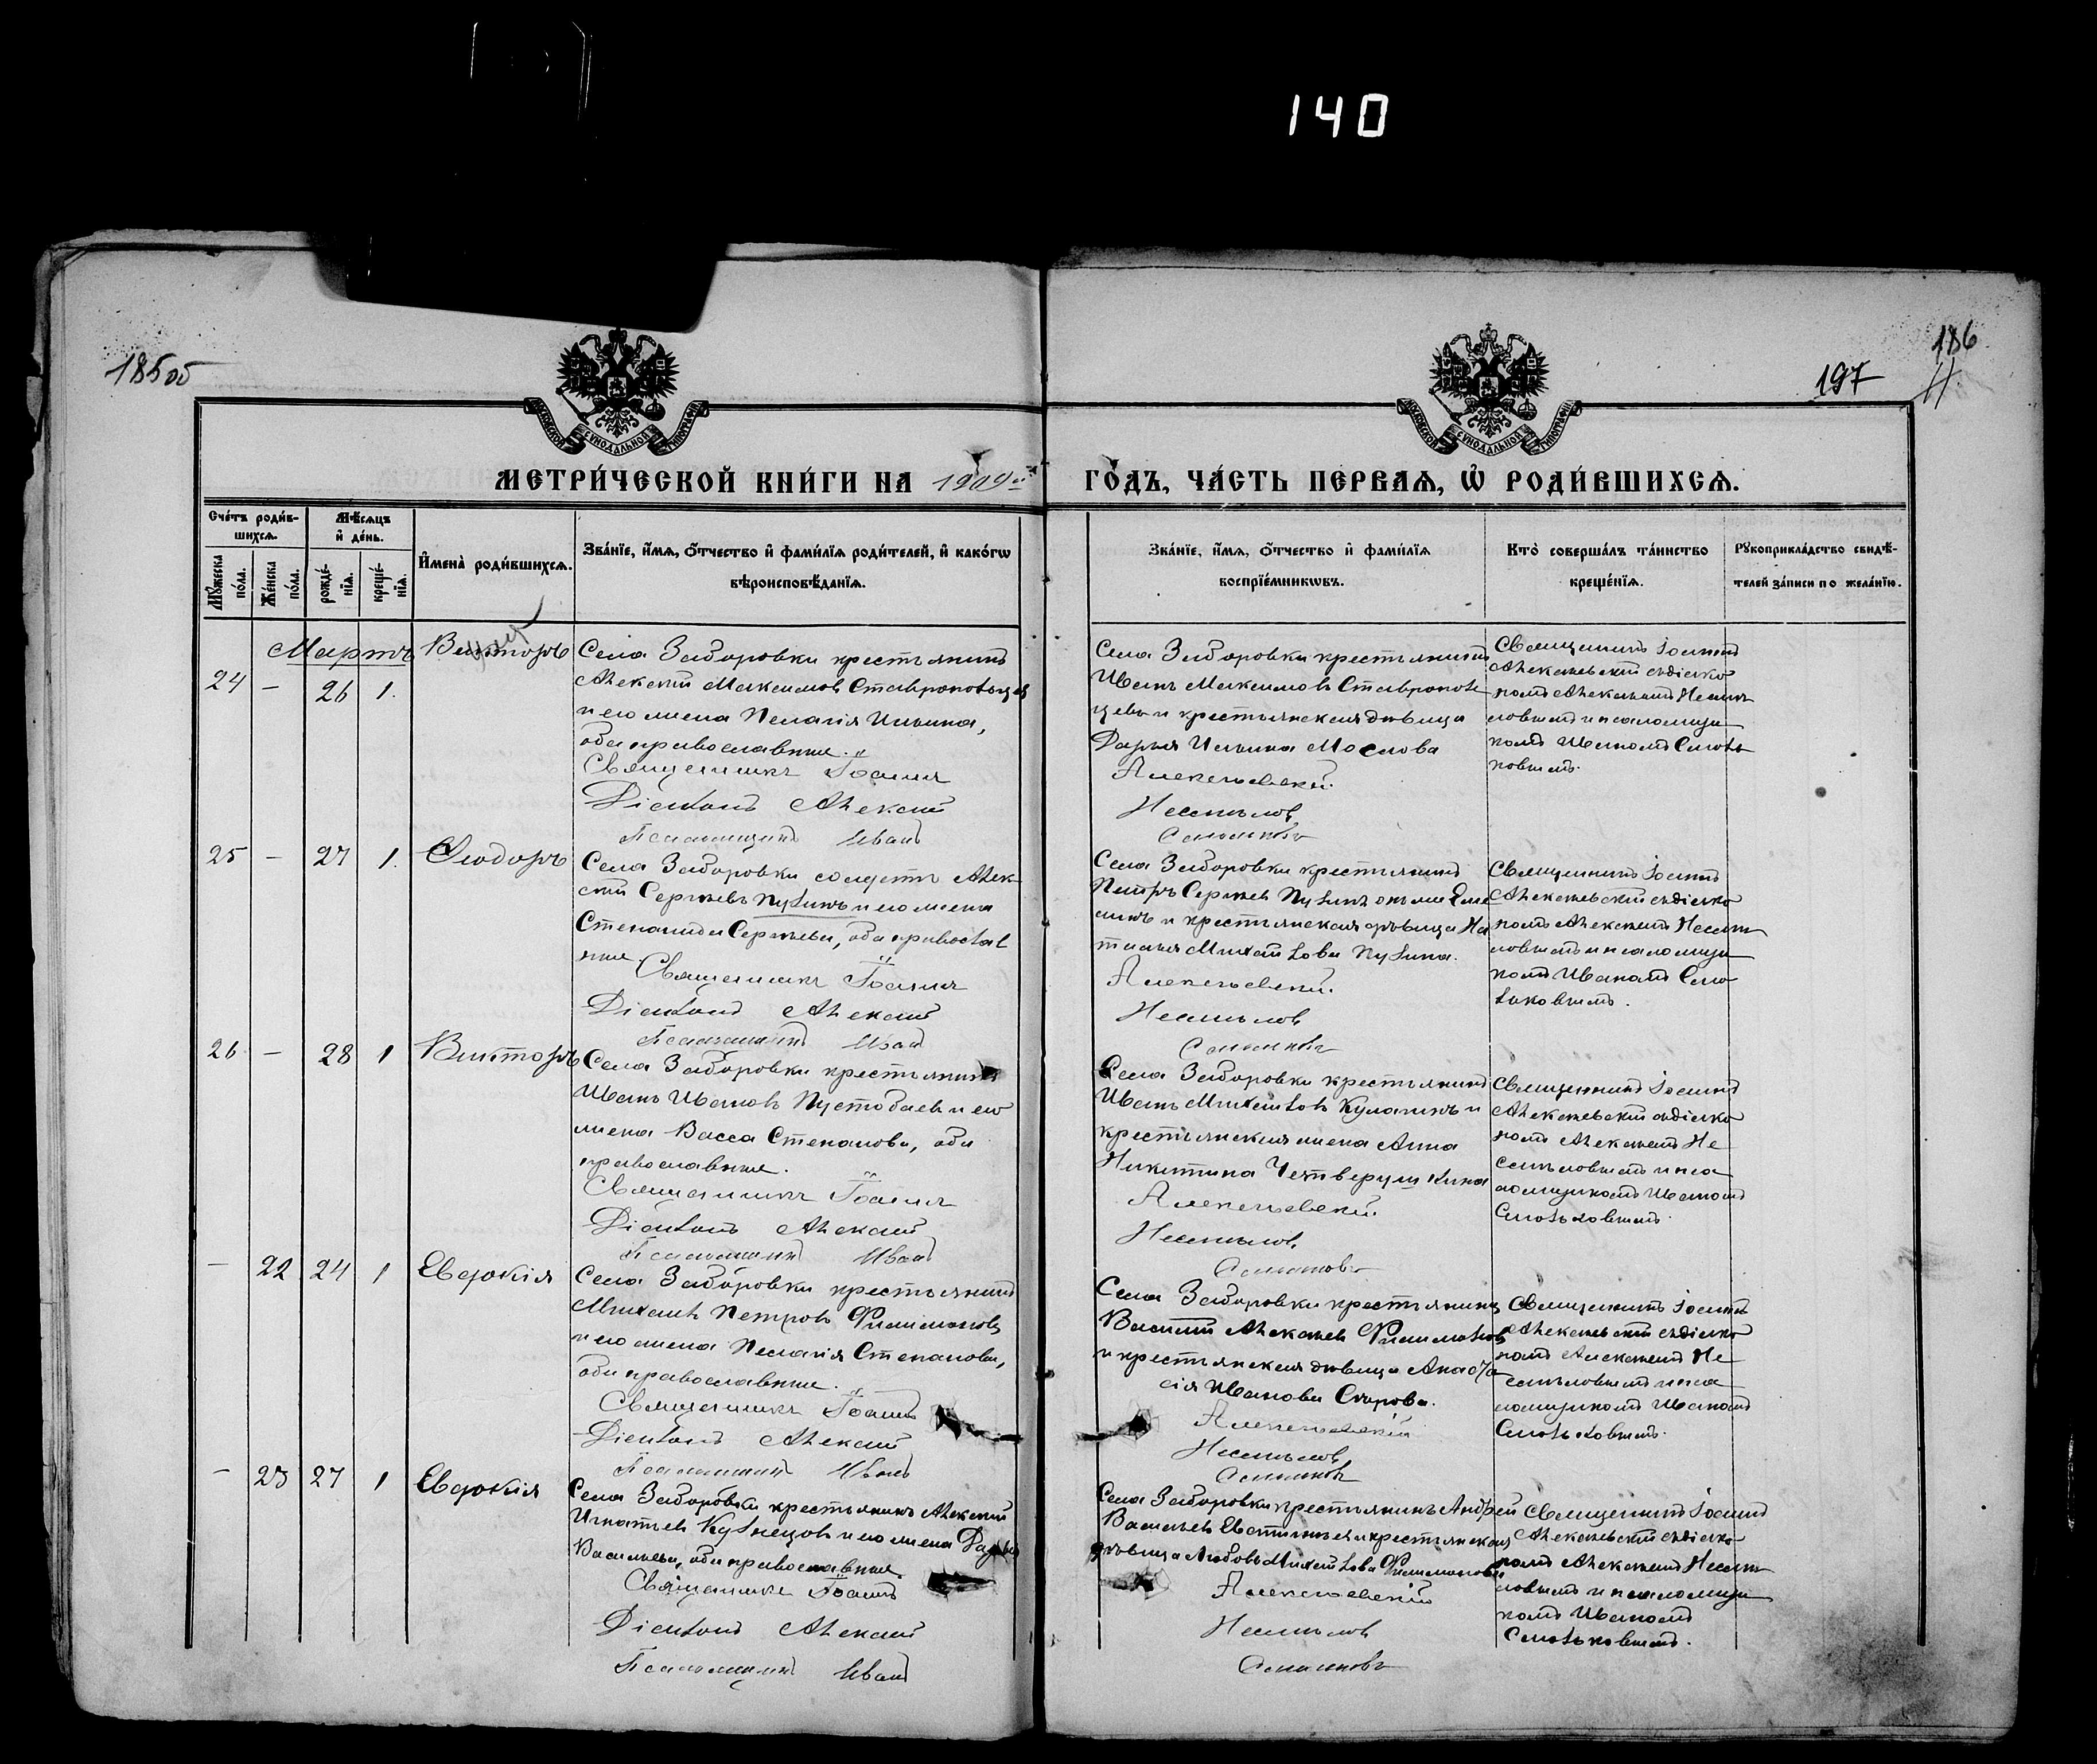 140
185об
186
197
МОСКОВСКОЙ СѴНОДАЛЬНОЙ ТИПОГРАФІИ
МОСКОВСКОЙ СѴНОДАЛЬНОЙ ТИПОГРАФІИ
МЕТРИ́ЧЕСКОЙ КНИ́ГИ НА 1909й ГО́ДЪ, ЧА́СТЬ ПЕ́РВАѦ, Ѡ҆ РОДИ́ВШИХСѦ.
Сче́тъ роди́в-
шихсѧ.
Мꙋ́жеска по́ла.
Же́нска по́ла.
Мѣ́сѧцъ
и҆ де́нь.
рожде́-
нїѧ.
креще́-
нїѧ.
И҆мена̀ роди́вшихсѧ.
Зва́нїе, и҆́мѧ, ѻ҆́тчество и҆ фами́лїѧ роди́телей, и҆ како́гѡ
вѣроисповѣ́данїѧ.
Зва́нїе, и҆́мѧ, ѻ҆́тчество и҆ фами́лїѧ
воспрїе́мникѡвъ.
Кто̀ соверша́лъ та́инство
креще́нїѧ.
Рꙋкоприкла́дство свидѣ́-
телей за́писи по жела́нїю.
Мартъ
24 – 26 1. Викторъ
Села Заборовки крестьянинъ
Алексѣй Максимовъ Ставропольцевъ
и его жена Пелагія Ильина,
оба православные.
Священникъ Іоаннъ
Діаконъ Алексѣй
Псаломщикъ Иванъ
Села Заборовки крестьянинъ
Иванъ Максимовъ Ставрополь
цевъ и крестьянская дѣвица
Дарья Ильина Мослова
Алексѣевскій.
Несмѣловъ
Священникъ Іоаннъ
Алексѣевскій съ діако
номъ Алексѣемъ Несмѣ
ловымъ и псаломщи
комъ Иваномъ
25 – 27 1. Ѳеодоръ
Села Заборовки солдатъ Алек
сѣй Сергѣевъ Пузинъ и его жена
Степанида Сергѣева, оба православ
ные.
Священникъ Іоаннъ
Діаконъ Алексѣй
Псаломщикъ Иванъ
Села Заборовки крестьянинъ
Петръ Сергѣевъ Пузинъ
и крестьянская дѣвица На
талья Михайлова Пузина.
Алексѣевскій.
Несмѣловъ
Священникъ Іоаннъ
Алексѣевскій съ діако
номъ Алексѣемъ Несмѣ
ловымъ и псаломщи
комъ Иваномъ
26 – 28 1 Викторъ
Села Заборовки крестьянинъ
Иванъ Ивановъ Пустобаевъ и его
жена Васса Степанова, оба
православные.
Священникъ Іоаннъ
Діаконъ Алексѣй
Псаломщикъ Иванъ
Села Заборовки крестьянинъ
Иванъ Михайловъ Кулагинъ и
крестьянская жена Анна
Никитина Четверушкина
Алексѣевскій.
Несмѣловъ
Священникъ Іоаннъ
Алексѣевскій съ діако
номъ Алексѣемъ Не
смѣловымъ и пса
ломщикомъ Иваномъ
– 22 24 1 Евдокія
Села Заборовки крестьянинъ
Михаилъ Петровъ Филимоновъ
и его жена Пелагія Степанова,
оба православные.
Священникъ Іоаннъ
Діаконъ Алексѣй
Псаломщикъ Иванъ
Села Заборовки крестьянинъ
Василій Алексѣевъ Филимоновъ
и крестьянская дѣвица Анаста
сія Иванова Старова.
Алексѣевскій
Несмѣловъ
Священникъ Іоаннъ
Алексѣевскій съ діако
номъ Алексѣемъ Не
смѣловымъ и пса
ломщикомъ Иваномъ
– 23 27 1 Евдокія
Села Заборовки крестьянинъ Алексѣй
Игнатьевъ Кузнецовъ и его жена Дарья
Васильева, оба православные.
Священникъ Іоаннъ
Діаконъ Алексѣй
Псаломщикъ Иванъ
Села Заборовки крестьянинъ Андрей
Васильевъ Евстигнѣевъ и крестьянская
дѣвица Любовь Михайлова Филимонова
Алексѣевскій
Несмѣловъ
Священникъ Іоаннъ
Алексѣевскій съ діако
номъ Алексѣемъ Несмѣ
ловымъ и псаломщи
комъ Иваномъ